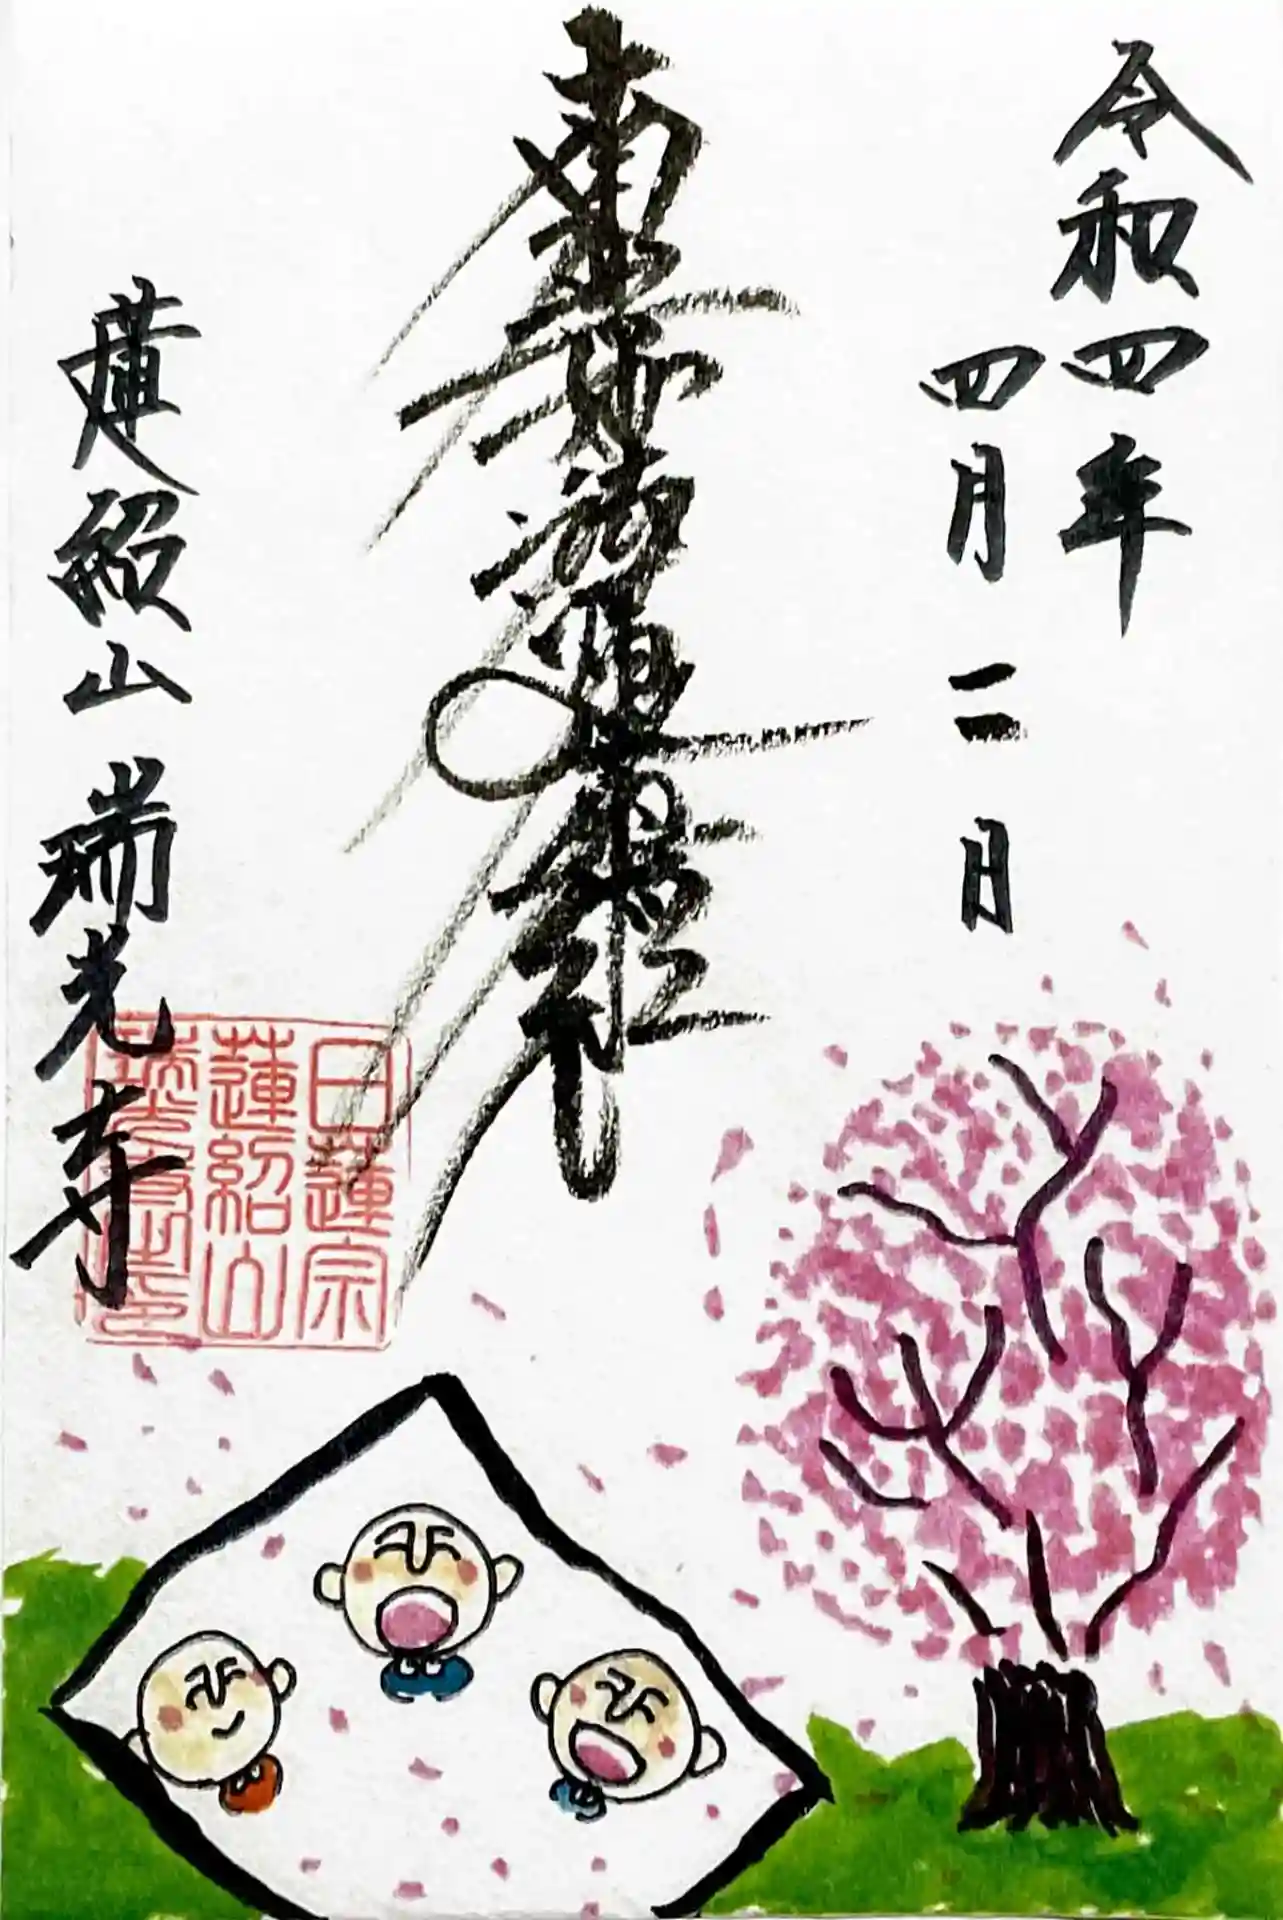 令和四年
四月二日
南無妙法蓮華経
蓮紹山 瑞光寺
日蓮宗
蓮紹山
瑞光寺之印